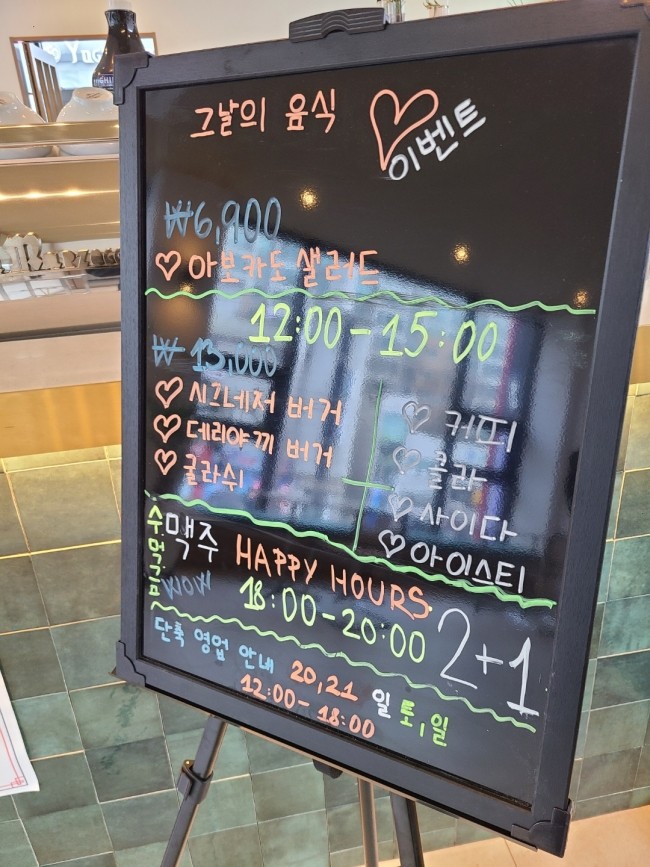 그날의 음식 이벤트
₩6,900
아보카도 샐러드
12:00-15:00
₩ 13,000
시프네저 버거
데리야끼 버거
굴라쉬
커피
콜라
사이다
아이스티
수.목.금
맥주 HAPPY HOURS
WOW 18:00-20:00
2+1
단축 영업 안내 20,21 일 토,일
12:00-18:00